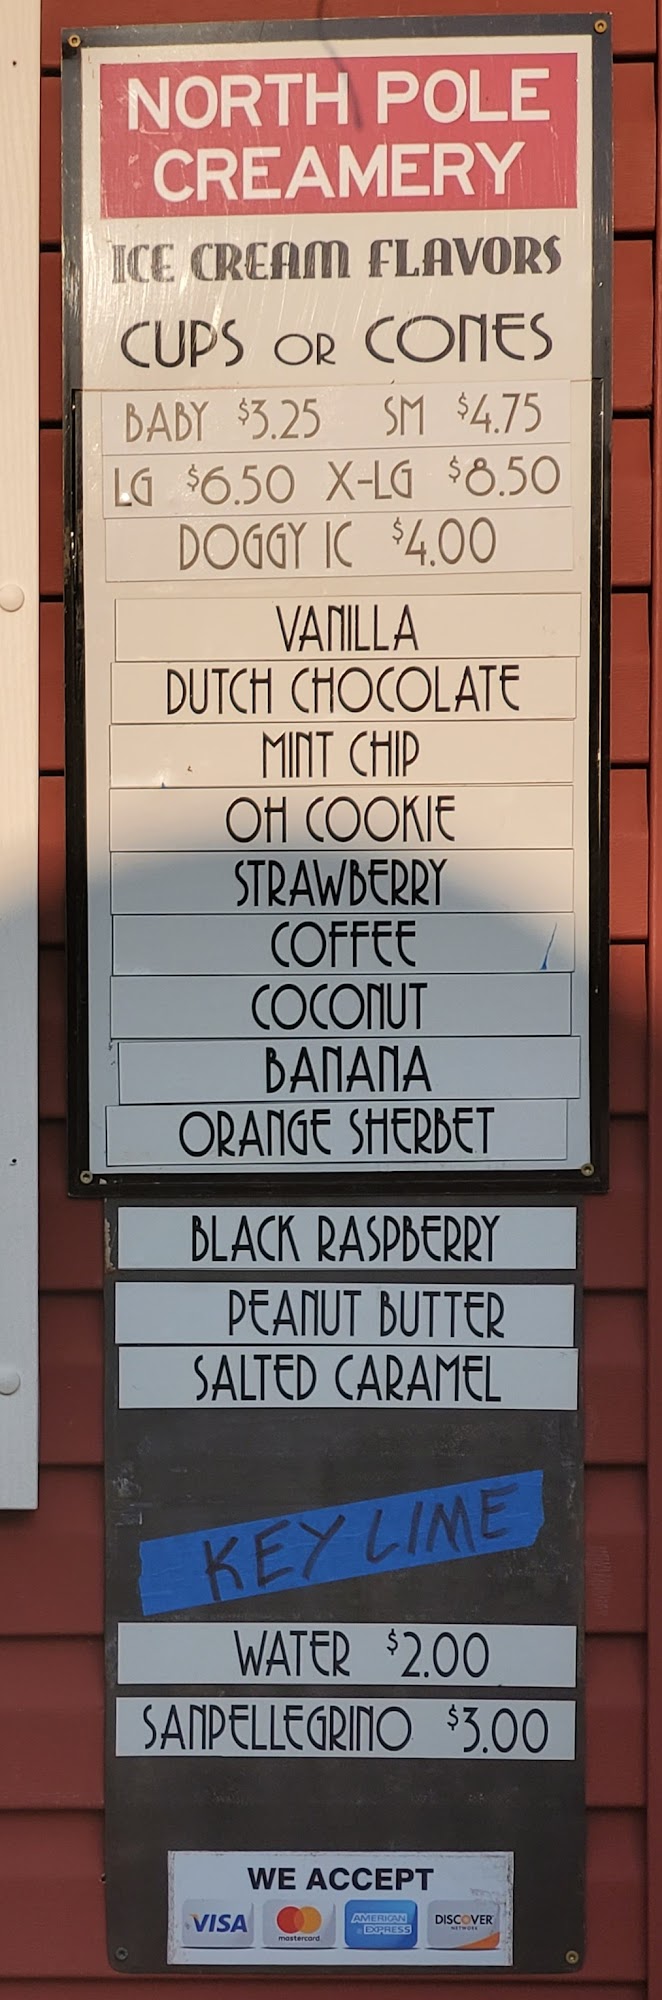 NORTH POLE
CREAMERY
ICE CREAM FLAVORS
CUPS OR CONES
BABY $3.25 SM $4.75
LG $6.50 X-LG $8.50
DOGGY IC $4.00
VANILLA
DUTCH CHOCOLATE
MINT CHIP
OH COOKIE
STRAWBERRY
COFFEE
COCONUT
BANANA
ORANGE SHERBET
BLACK RASPBERRY
PEANUT BUTTER
SALTED CARAMEL
KEY LIME
WATER $2.00
SANPELLEGRINO $3.00
WE ACCEPT
VISA mastercard AMERICAN EXPRESS DISCOVER NETWORK